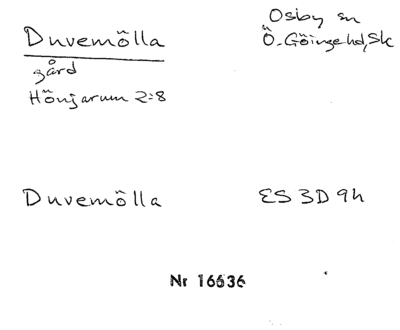 Duvemölla
gård
Hönjarum 2:8
Osby sn
Ö. Göinge hd, Sk
Duvemölla
ES 3D 9h
Nr 16636